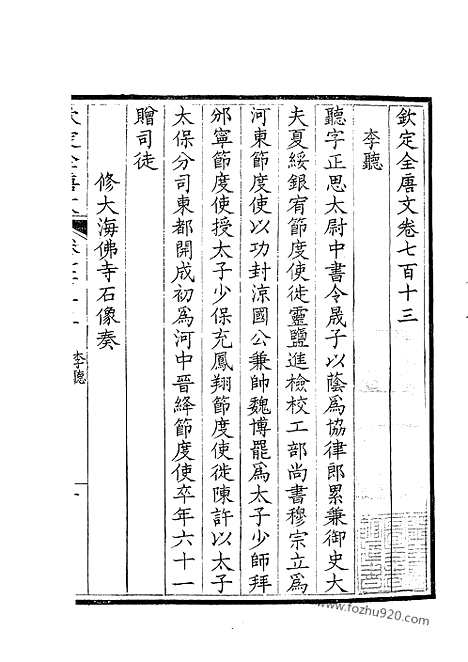 欽定全唐文卷七百十三
李聽
聽字正思太尉中書令晟子以蔭為協律郎累兼御史大
夫夏綏銀宥節度使徙靈鹽進檢校工部尚書穆宗立為
河東節度使以功封涼國公兼帥魏博罷為太子少師拜
邠寧節度使授太子少保充鳳翔節度使徙陳許以太子
太保分司東都開成初為河中晉絳節度使卒年六十一
贈司徒
修大海佛寺石像奏
欽定全唐文
李聽
一
www.fozhu920.com